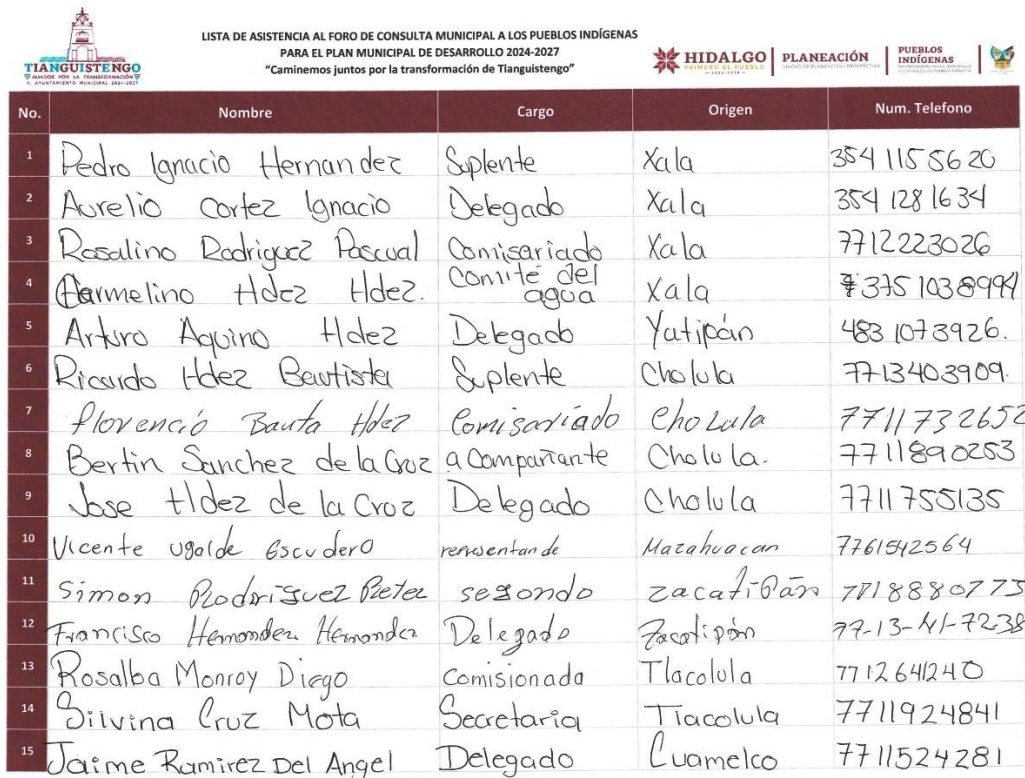 LISTA DE ASISTENCIA AL FORO DE CONSULTA MUNICIPAL A LOS PUEBLOS INDÍGENAS
PARA EL PLAN MUNICIPAL DE DESARROLLO 2024-2027
"Caminemos juntos por la transformación de Tianguistengo"
TIANGUISTENGO
UNIDOS POR LA TRANSFORMACIÓN
H. AYUNTAMIENTO MUNICIPAL 2024-2027
HIDALGO
PRIMERO EL PUEBLO
PLANEACIÓN
PUEBLOS
INDÍGENAS
No. Nombre Cargo Origen Num. Telefono
1 Pedro Ignacio Hernandez Suplente Xala 354 115 5620
2 Aurelio Cortez Ignacio Delegado Xala 354 128 1634
3 Rosalino Rodriguez Pascual Comisariado Xala 7712223026
4 Carmelino Hdez Hdez. Comité del agua Xala 375 1038994
5 Arturo Aquino Hdez Delegado Yatipán 483 1073926.
6 Ricardo Hdez Bautista Suplente Cholula 7713403909.
7 florenció Bauta Hdez Comisariado Cholula 7711732652
8 Bertin Sanchez de la Cruz a Compañante Cholula. 7711890253
9 Jose Hdez de la Cruz Delegado Cholula 7711755135
10 Vicente ugalde Escudero Mazahuacan 7761542564
11 Simon Rodriguez segondo zacatipán 7718880773
12 Francisco Hernandez Hernandez Delegado Zacatipán
13 Rosalba Monroy Diego Comisionada Tlacolula 7712641240
14 Silvina Cruz Mota Secretaria Tlacolula 7711924841
15 Jaime Ramirez Del Angel Delegado Cuamelco 7711524281